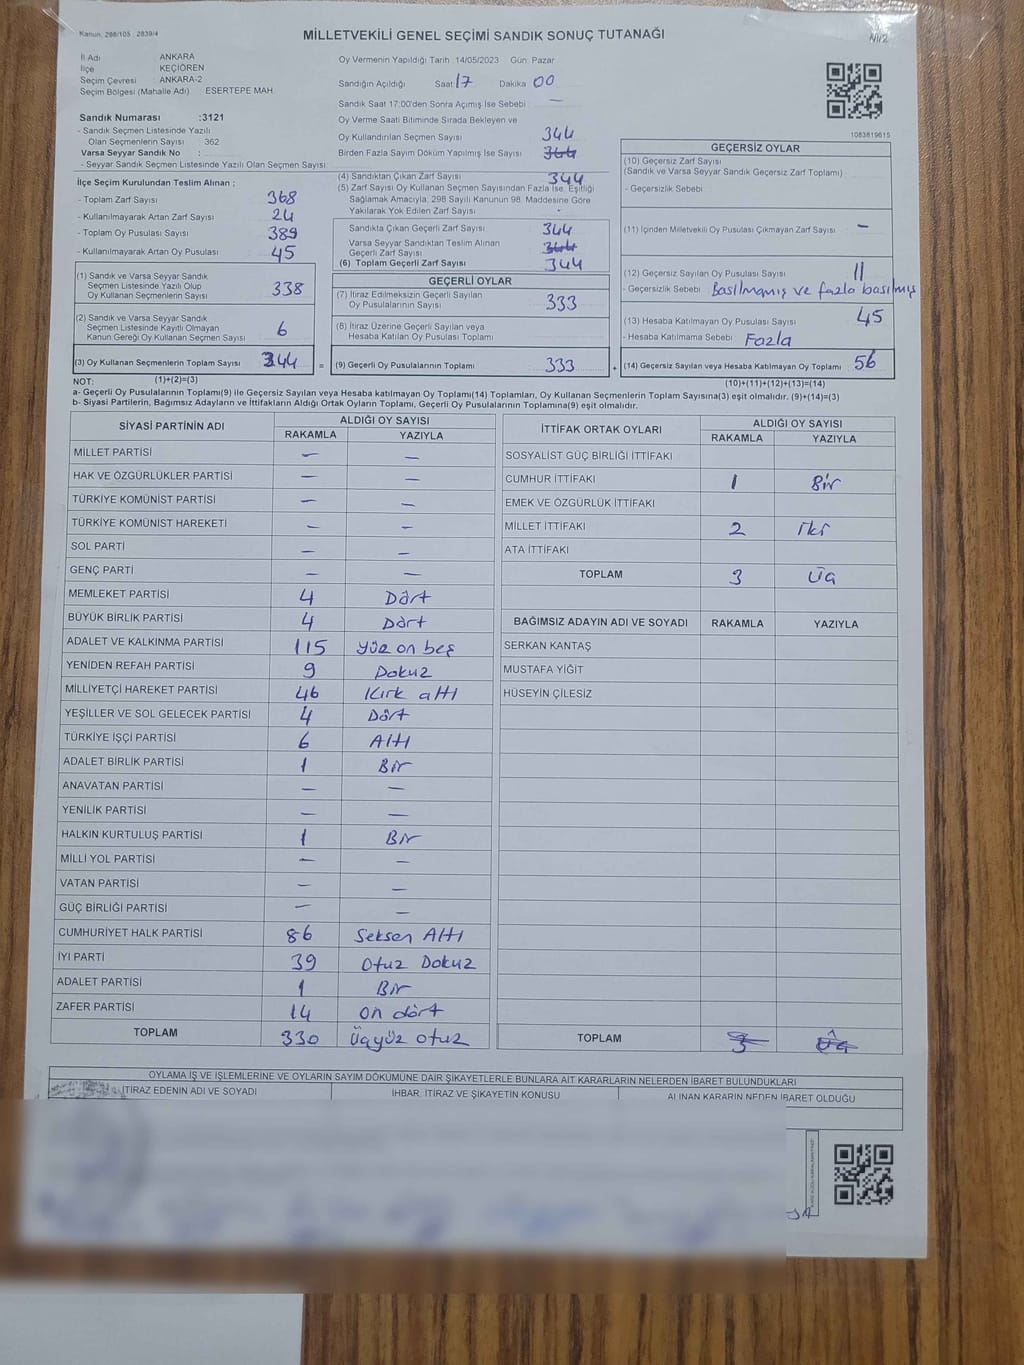 Kanun, 298/105 , 2839/4
MİLLETVEKİLİ GENEL SEÇİMİ SANDIK SONUÇ TUTANAĞI
İl Adı ANKARA
İlçe KEÇİÖREN
Seçim Çevresi ANKARA-2
Seçim Bölgesi (Mahalle Adı) ESERTEPE MAH.
Sandık Numarası :3121
- Sandık Seçmen Listesinde Yazılı
Olan Seçmenlerin Sayısı : 362
Varsa Seyyar Sandık No :
- Seyyar Sandık Seçmen Listesinde Yazılı Olan Seçmen Sayısı:
Oy Vermenin Yapıldığı Tarih :14/05/2023 Gün: Pazar
Sandığın Açıldığı Saat 17 Dakika 00
Sandık Saat 17:00'den Sonra Açımış İse Sebebi : —
Oy Verme Saati Bitiminde Sırada Bekleyen ve
Oy Kullandırılan Seçmen Sayısı 344
Birden Fazla Sayım Döküm Yapılmış İse Sayısı 344
1083819615
İlçe Seçim Kurulundan Teslim Alınan ;
- Toplam Zarf Sayısı 368
- Kullanılmayarak Artan Zarf Sayısı 24
- Toplam Oy Pusulası Sayısı 389
- Kullanılmayarak Artan Oy Pusulası 45
(1) Sandık ve Varsa Seyyar Sandık
Seçmen Listesinde Yazılı Olup
Oy Kullanan Seçmenlerin Sayısı 338
(2) Sandık ve Varsa Seyyar Sandık
Seçmen Listesinde Kayıtlı Olmayan
Kanun Gereği Oy Kullanan Seçmen Sayısı 6
(3) Oy Kullanan Seçmenlerin Toplam Sayısı 344
(4) Sandıktan Çıkan Zarf Sayısı 344
(5) Zarf Sayısı Oy Kullanan Seçmen Sayısından Fazla İse, Eşitliği
Sağlamak Amacıyla, 298 Sayılı Kanunun 98. Maddesine Göre
Yakılarak Yok Edilen Zarf Sayısı
Sandıkta Çıkan Geçerli Zarf Sayısı 344
Varsa Seyyar Sandıktan Teslim Alınan
Geçerli Zarf Sayısı 344
(6) Toplam Geçerli Zarf Sayısı 344
GEÇERLİ OYLAR
(7) İtiraz Edilmeksizin Geçerli Sayılan
Oy Pusulalarının Sayısı 333
(8) İtiraz Üzerine Geçerli Sayılan veya
Hesaba Katılan Oy Pusulaları Toplamı
= (9) Geçerli Oy Pusulalarının Toplamı 333
GEÇERSİZ OYLAR
(10) Geçersiz Zarf Sayısı
(Sandık ve Varsa Seyyar Sandık Geçersiz Zarf Toplamı)
- Geçersizlik Sebebi :
(11) İçinden Milletvekili Oy Pusulası Çıkmayan Zarf Sayısı —
(12) Geçersiz Sayılan Oy Pusulası Sayısı 11
- Geçersizlik Sebebi : Basılmamış ve fazla basılmış
(13) Hesaba Katılmayan Oy Pusulası Sayısı 45
- Hesaba Katılmama Sebebi : Fazla
+ (14) Geçersiz Sayılan veya Hesaba Katılmayan Oy Toplamı 56
NOT: (1)+(2)=(3) (10)+(11)+(12)+(13)=(14)
a- Geçerli Oy Pusulaları Toplamı(9) ile Geçersiz Sayılan veya Hesaba katılmayan Oy Toplamı(14) Toplamları, Oy Kullanan Seçmenlerin Toplam Sayısına(3) eşit olmalıdır. (9)+(14)=(3)
b- Siyasi Partilerin, Bağımsız Adayların ve İttifakların Aldığı Ortak Oyların Toplamı, Geçerli Oy Pusulalarının Toplamına(9) eşit olmalıdır.
SİYASİ PARTİNİN ADI ALDIĞI OY SAYISI
RAKAMLA YAZIYLA
MİLLET PARTİSİ — —
HAK VE ÖZGÜRLÜKLER PARTİSİ — —
TÜRKİYE KOMÜNİST PARTİSİ — —
TÜRKİYE KOMÜNİST HAREKETİ — —
SOL PARTİ — —
GENÇ PARTİ — —
MEMLEKET PARTİSİ 4 Dört
BÜYÜK BİRLİK PARTİSİ 4 Dört
ADALET VE KALKINMA PARTİSİ 115 Yüz on beş
YENİDEN REFAH PARTİSİ 9 Dokuz
MİLLİYETÇİ HAREKET PARTİSİ 46 Kırk altı
YEŞİLLER VE SOL GELECEK PARTİSİ 4 Dört
TÜRKİYE İŞÇİ PARTİSİ 6 Altı
ADALET BİRLİK PARTİSİ 1 Bir
ANAVATAN PARTİSİ — —
YENİLİK PARTİSİ — —
HALKIN KURTULUŞ PARTİSİ 1 Bir
MİLLİ YOL PARTİSİ — —
VATAN PARTİSİ — —
GÜÇ BİRLİĞİ PARTİSİ — —
CUMHURİYET HALK PARTİSİ 86 Seksen Altı
İYİ PARTİ 39 Otuz Dokuz
ADALET PARTİSİ 1 Bir
ZAFER PARTİSİ 14 On dört
TOPLAM 330 Üçyüz otuz
İTTİFAK ORTAK OYLARI ALDIĞI OY SAYISI
RAKAMLA YAZIYLA
SOSYALİST GÜÇ BİRLİĞİ İTTİFAKI
CUMHUR İTTİFAKI 1 Bir
EMEK VE ÖZGÜRLÜK İTTİFAKI
MİLLET İTTİFAKI 2 İki
ATA İTTİFAKI
TOPLAM 3 Üç
BAĞIMSIZ ADAYIN ADI VE SOYADI RAKAMLA YAZIYLA
SERKAN KANTAŞ
MUSTAFA YİĞİT
HÜSEYİN ÇİLESİZ
TOPLAM 3 Üç
OYLAMA İŞ VE İŞLEMLERİNE VE OYLARIN SAYIM DÖKÜMÜNE DAİR ŞİKAYETLERLE BUNLARA AİT KARARLARIN NELERDEN İBARET BULUNDUKLARI
İTİRAZ EDENİN ADI VE SOYADI İHBAR, İTİRAZ VE ŞİKAYETİN KONUSU ALINAN KARARIN NEDEN İBARET OLDUĞU